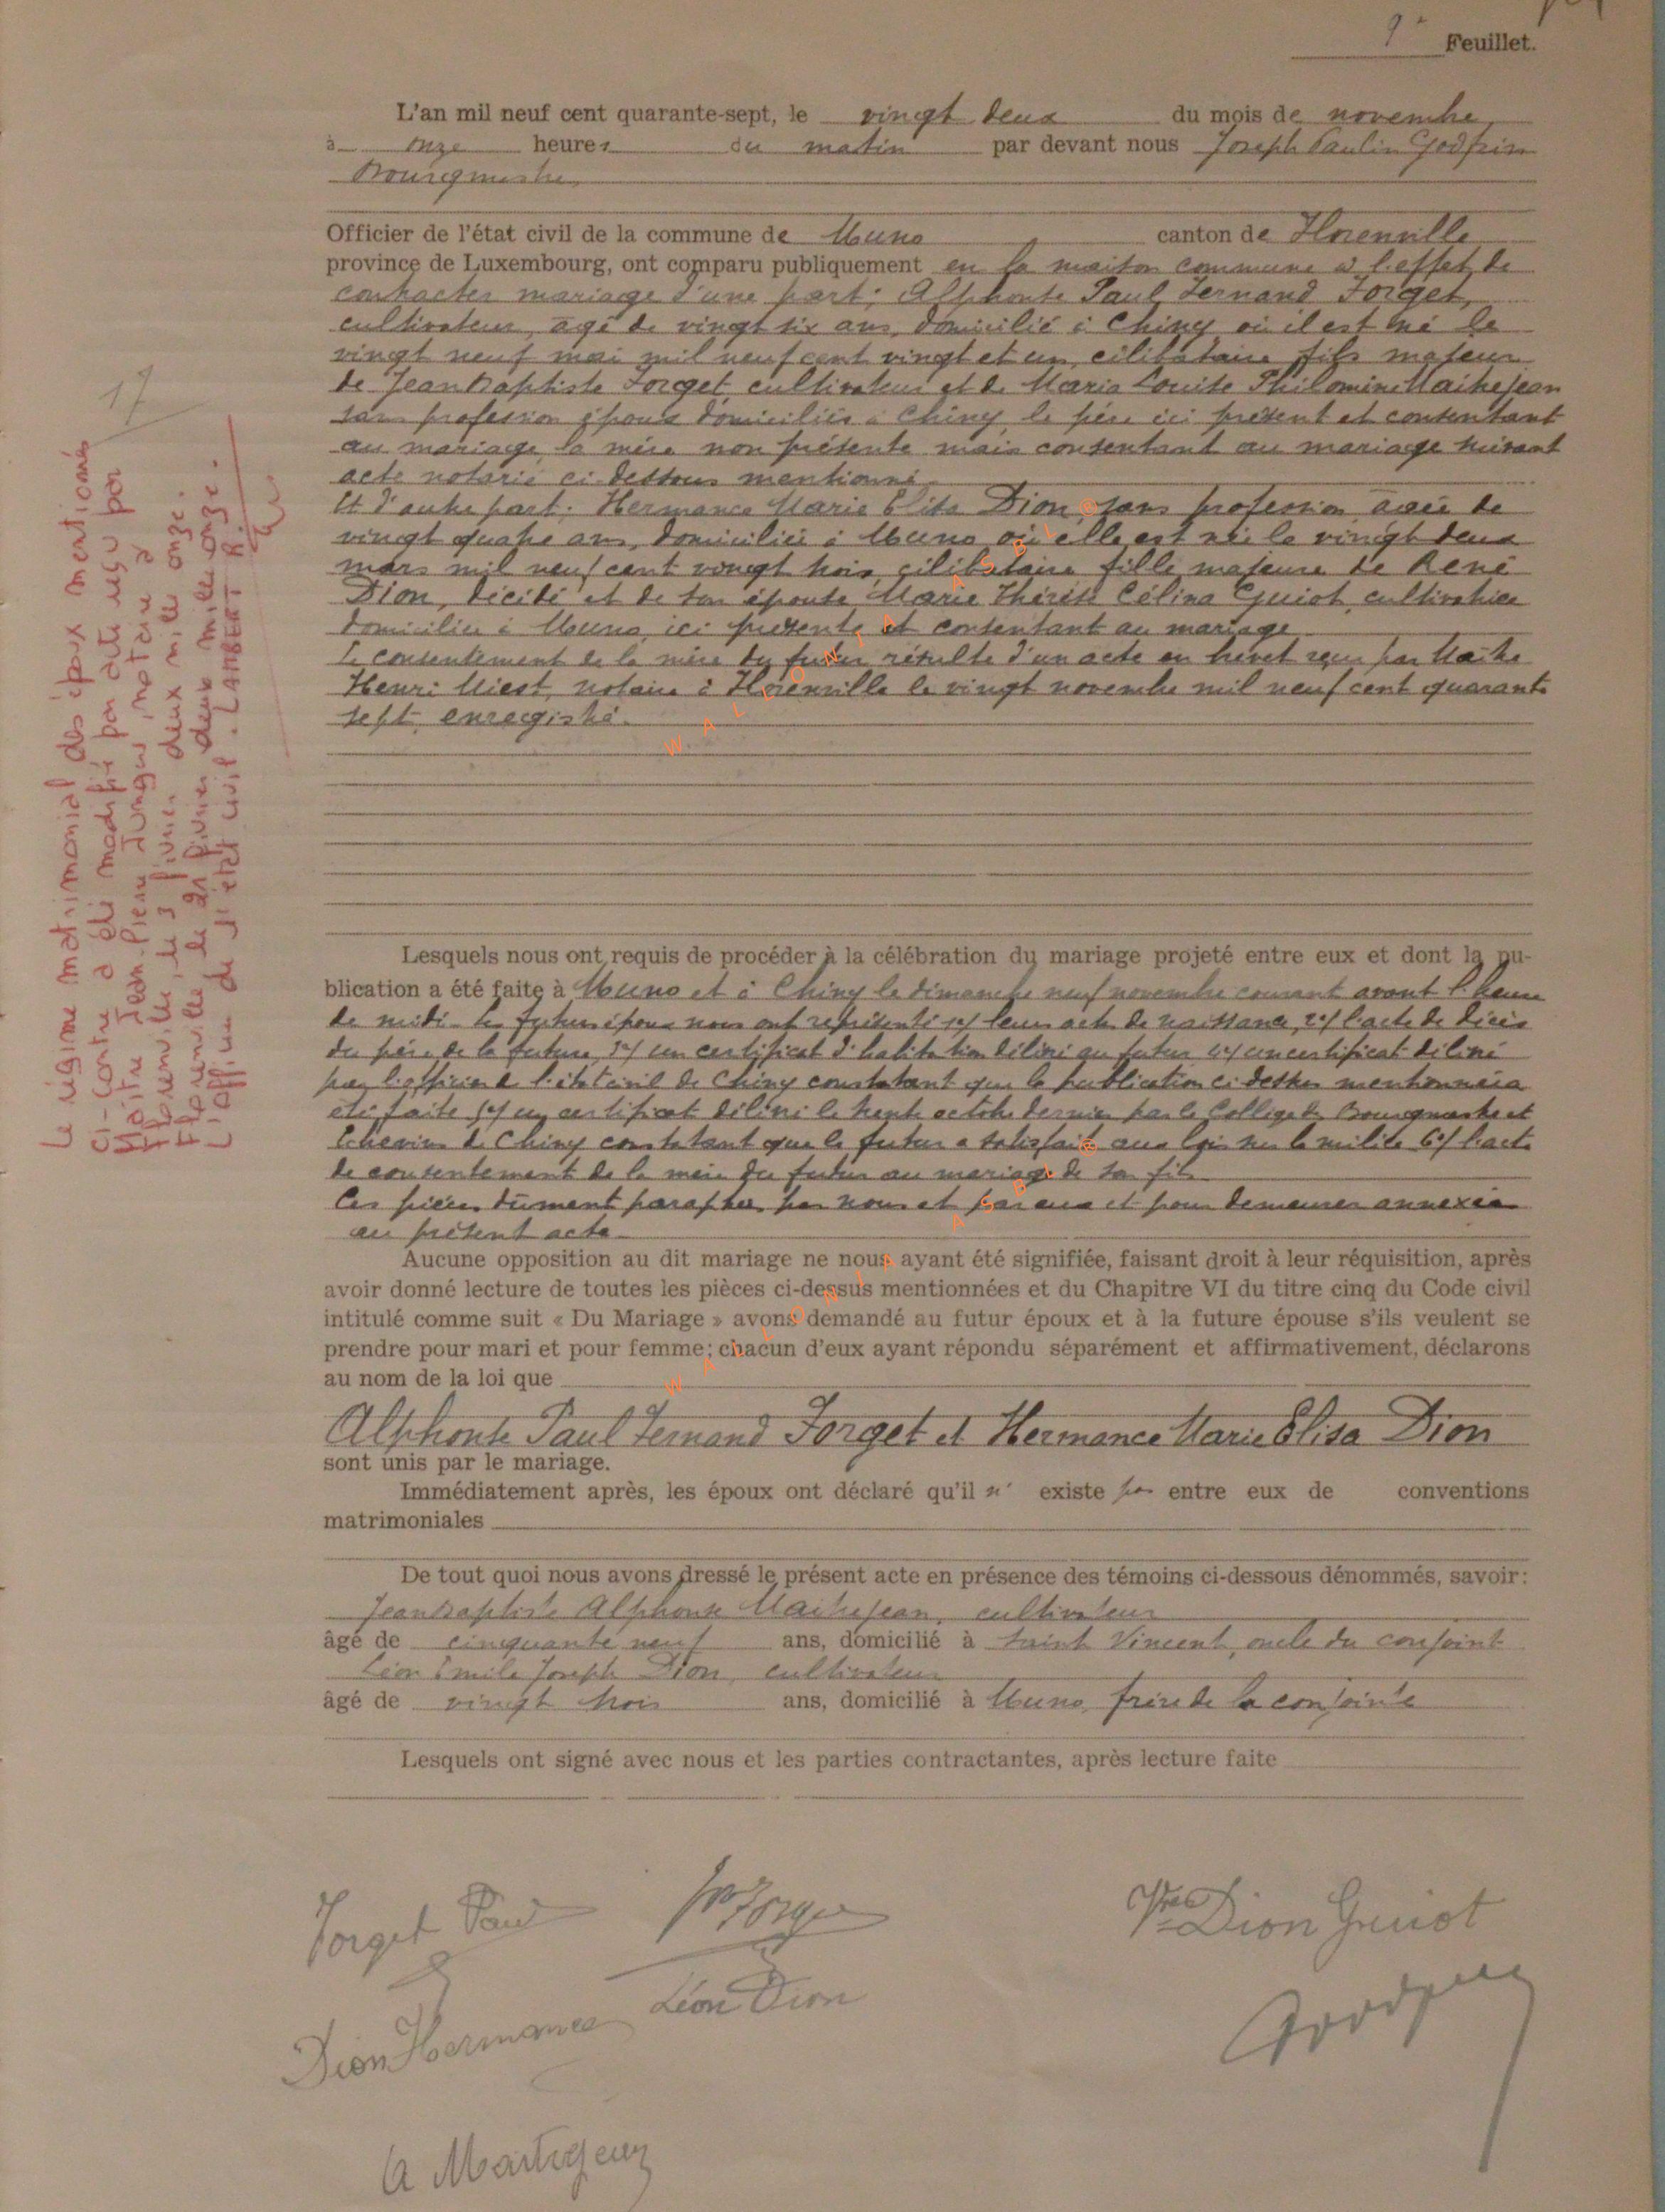 9e Feuillet.
L'an mil neuf cent quarante-sept, le vingt deux du mois de novembre
à onze heures du matin par devant nous Joseph Paulin Godfrin
Bourgmestre
Officier de l'état civil de la commune de Muno canton de Florenville
province de Luxembourg, ont comparu publiquement en la maison commune à l'effet de
contracter mariage d'une part; Alphonse Paul Fernand Forget,
cultivateur, âgé de vingt six ans, domicilié à Chiny où il est né le
vingt neuf mai mil neuf cent vingt et un, célibataire fils majeur
de Jean Baptiste Forget cultivateur et de Maria Louise Philomine Maitrejean
sans profession époux domiciliés à Chiny, le père ici présent et consentant
au mariage la mère non présente mais consentant au mariage suivant
acte notarié ci-dessous mentionné.
Et d'autre part: Hermance Marie Elisa Dion, sans profession âgée de
vingt quatre ans, domiciliée à Muno où elle est née le vingt deux
mars mil neuf cent vingt trois, célibataire fille majeure de René
Dion, décédé et de son épouse Marie Thérèse Célina Guiot, cultivatrice
domiciliée à Muno, ici présente et consentant au mariage
Le consentement de la mère du futur résulte d'un acte en brevet reçu par Maitre
Henri Miest, notaire à Florenville le vingt novembre mil neuf cent quarante
sept, enregistré.
Lesquels nous ont requis de procéder à la célébration du mariage projeté entre eux et dont la pu-
blication a été faite à Muno et à Chiny le dimanche neuf novembre courant avant l'heure
de midi. Les futurs époux nous ont représenté 1°/ leurs actes de naissance, 2°/ l'acte de décès
du père de la future, 3°/ un certificat d'habitation délivré au futur 4°/ un certificat délivré
par l'officier de l'état civil de Chiny constatant que la publication ci dessus mentionnée a
été faite 5°/ un certificat délivré le trente octobre dernier par le Collège de Bourgmestre et
Echevins de Chiny constatant que le futur a satisfait aux lois sur la milice 6°/ l'acte
de consentement de la mère du futur au mariage de son fils
Ces pièces dûment paraphées par nous et par eux et pour demeurer annexées
au présent acte
Aucune opposition au dit mariage ne nous ayant été signifiée, faisant droit à leur réquisition, après
avoir donné lecture de toutes les pièces ci-dessus mentionnées et du Chapitre VI du titre cinq du Code civil
intitulé comme suit « Du Mariage » avons demandé au futur époux et à la future épouse s'ils veulent se
prendre pour mari et pour femme; chacun d'eux ayant répondu séparément et affirmativement, déclarons
au nom de la loi que
Alphonse Paul Fernand Forget et Hermance Marie Elisa Dion
sont unis par le mariage.
Immédiatement après, les époux ont déclaré qu'il n' existe pas entre eux de conventions
matrimoniales
De tout quoi nous avons dressé le présent acte en présence des témoins ci-dessous dénommés, savoir:
Jean Baptiste Alphonse Maitrejean, cultivateur
âgé de cinquante neuf ans, domicilié à Saint Vincent, oncle du conjoint
Léon Emile Joseph Dion, cultivateur
âgé de vingt trois ans, domicilié à Muno, frère de la conjointe
Lesquels ont signé avec nous et les parties contractantes, après lecture faite
Forget Paul
Forget
Vve Dion Guiot
Dion Hermance
Léon Dion
Godfrin
A Maitrejean
17
Le régime matrimonial des époux mentionnés
ci-contre a été modifié par acte reçu par
Maître Jean-Pierre Jungers, notaire à
Florenville, le 3 février deux mille onze.
Florenville, le 21 février deux mille onze.
L'officier de l'état civil. LAMBERT R.
WALLONIA ASBL ©
WALLONIA ASBL ©